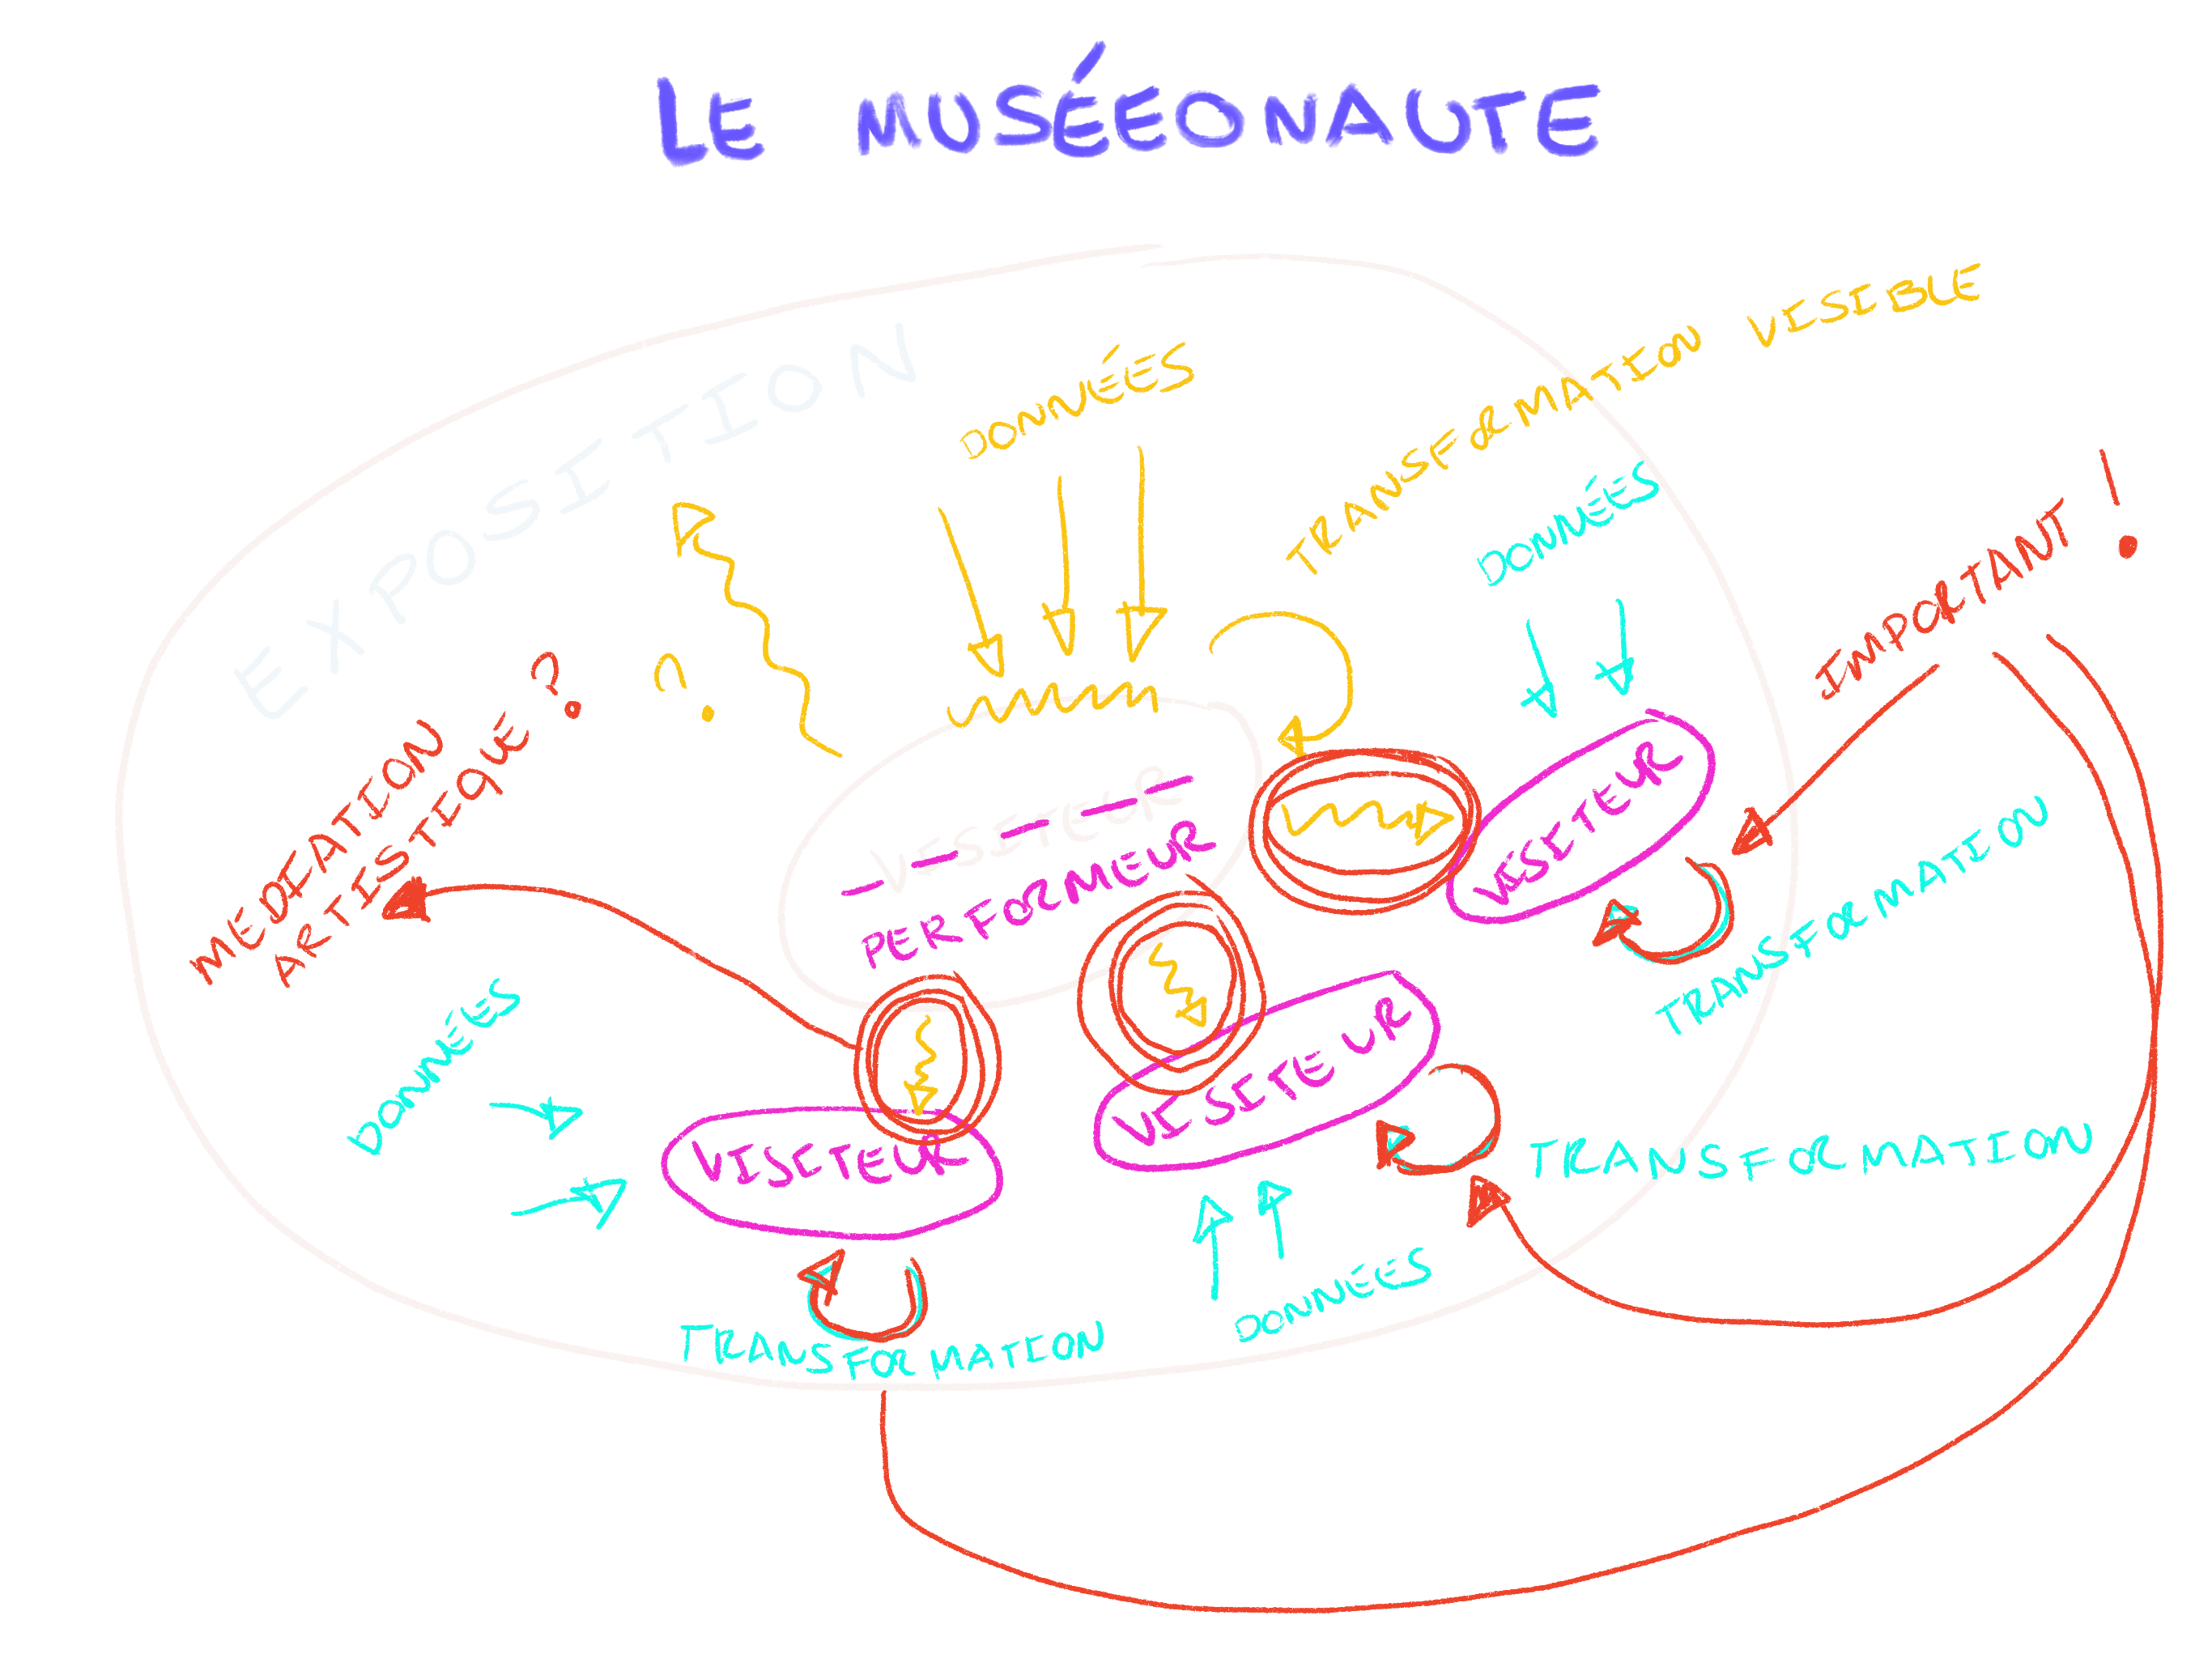 LE MUSÉEONAUTE
EXPOSITION
DONNÉES
TRANSFORMATION VISIBLE
DONNÉES
IMPORTANT !
MÉDIATION
ARTISTIQUE ?
?
VISITEUR
PERFORMEUR
VISITEUR
TRANSFORMATION
DONNÉES
VISITEUR
VISITEUR
TRANSFORMATION
DONNÉES
TRANSFORMATION